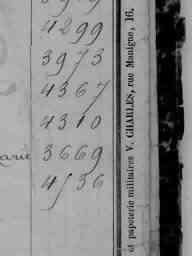 4299
3973
4367
4310
3669
4536
et papeterie militaires V. CHARLES, rue Manigne, 16.